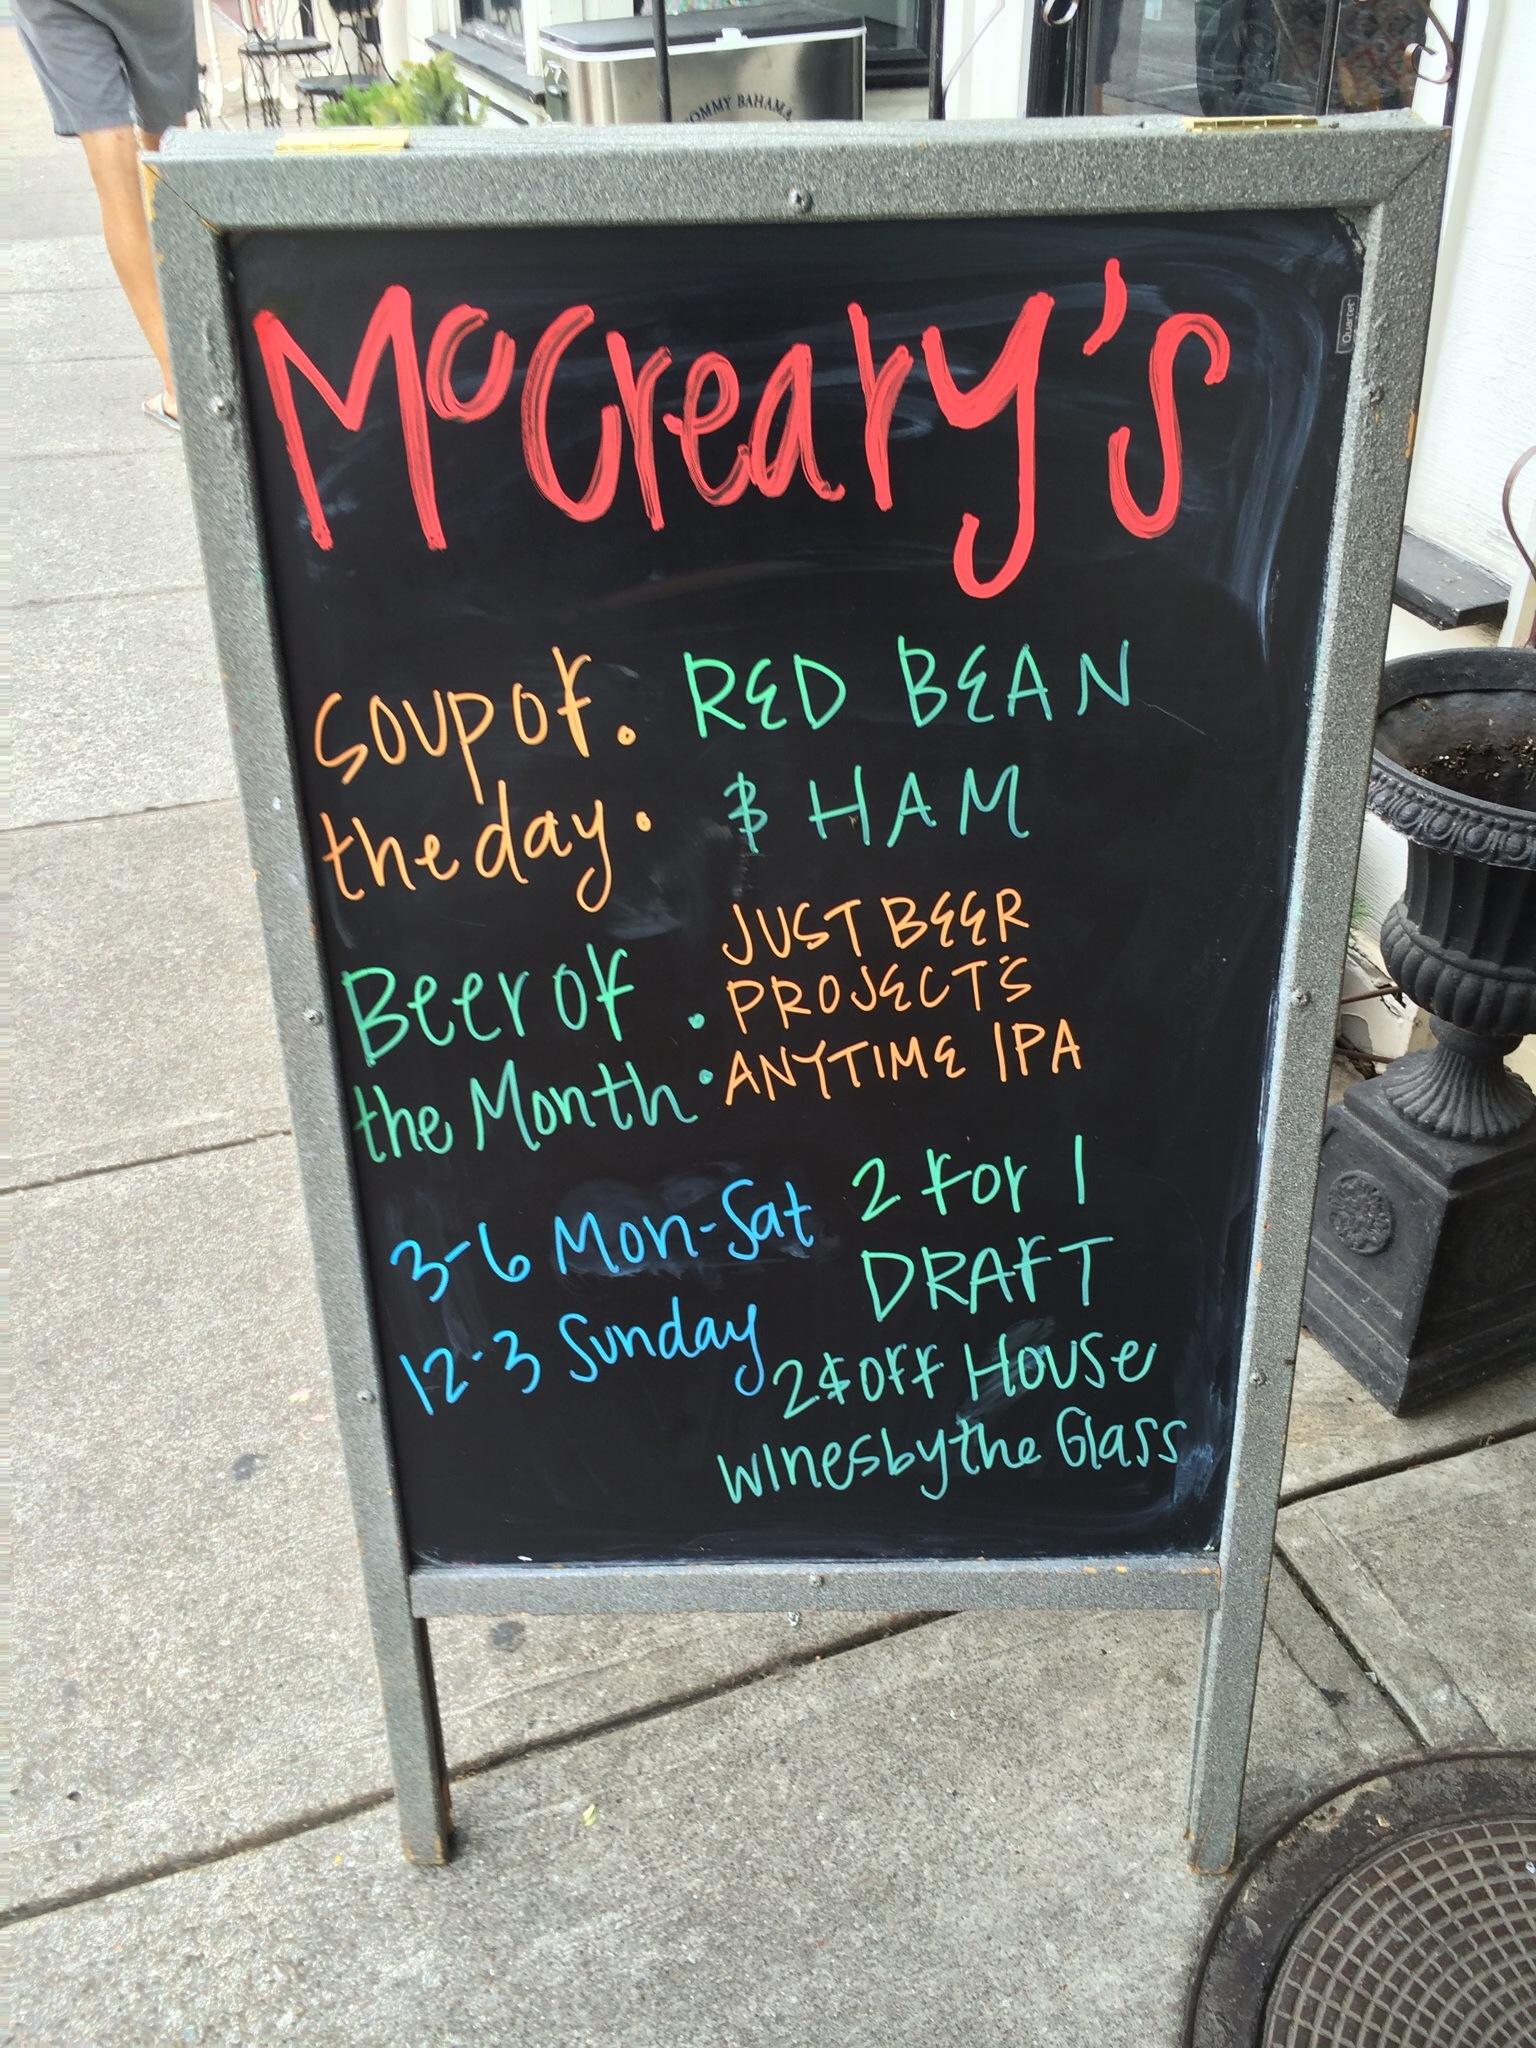 TOMMY BAHAMA
Quartet
McCreary's
Soup of : RED BEAN
the day & HAM
Beer of : JUST BEER
the Month PROJECT'S
ANYTIME IPA
3-6 Mon-Sat
12-3 Sunday
2 for 1
DRAFT
2$ off House
wines by the Glass